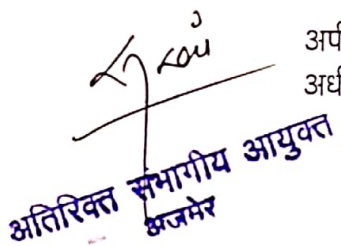 अपी
अधी
अतिरिक्त संभागीय आयुक्त
अजमेर